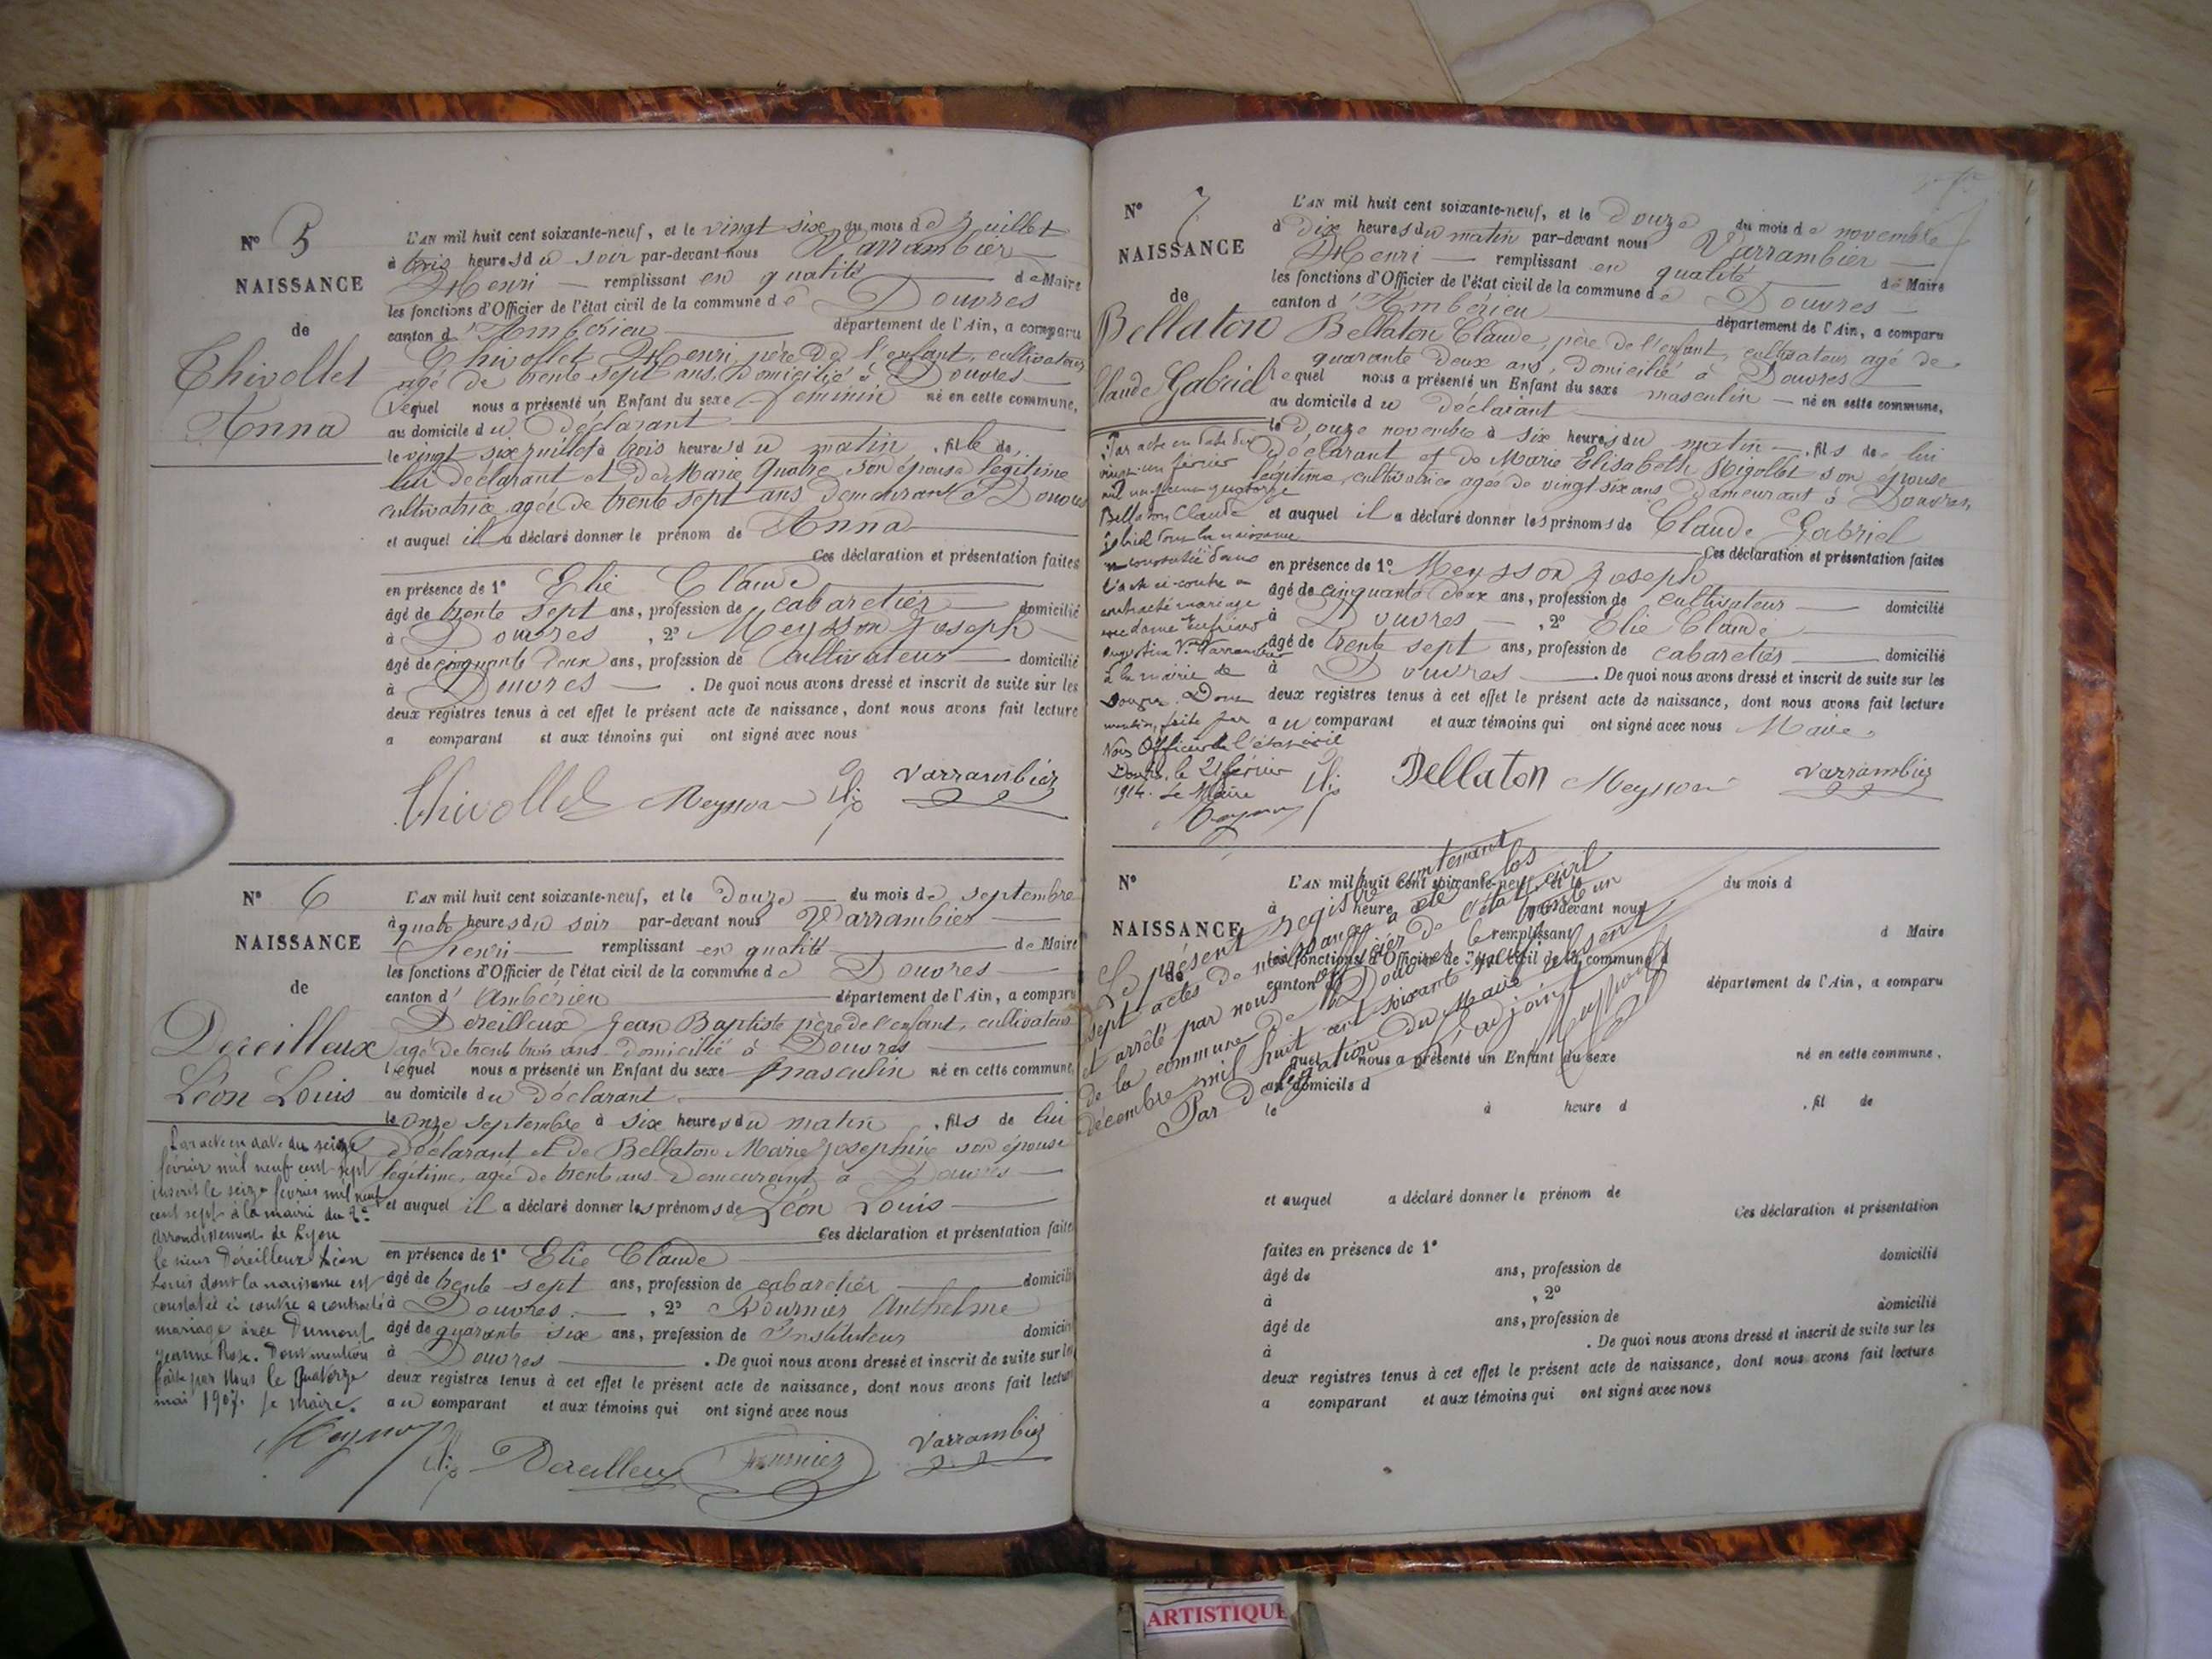 N° 5
NAISSANCE
de
Thivollet
Anna
L'AN mil huit cent soixante-neuf, et le vingt six du mois de Juillet
à trois heures du soir par-devant nous Varrambier
Henri remplissant en qualité de Maire
les fonctions d'Officier de l'état civil de la commune de Douvres
canton d'Ambérieu département de l'Ain, a comparu
Thivollet Henri, père de l'enfant, cultivateur
agé de trente sept ans, domicilié à Douvres
lequel nous a présenté un Enfant du sexe féminin né en cette commune,
au domicile du déclarant
le vingt six juillet à trois heures du matin, fille de
lui déclarant et de Marie Quatre, son épouse légitime
cultivatrice, agée de trente sept ans demeurant à Douvres
et auquel il a déclaré donner le prénom de Anna
Ces déclaration et présentation faites
en présence de 1° Elie Claude
âgé de trente sept ans, profession de cabaretier domicilié
à Douvres, 2° Meysson Joseph
âgé de cinquante deux ans, profession de Cultivateur domicilié
à Douvres. De quoi nous avons dressé et inscrit de suite sur les
deux registres tenus à cet effet le présent acte de naissance, dont nous avons fait lecture
a comparant et aux témoins qui ont signé avec nous
Thivollet Meysson Elie Varrambier
N° 6
NAISSANCE
de
Dereilleux
Léon Louis
L'AN mil huit cent soixante-neuf, et le douze du mois de septembre
à quatre heures du soir par-devant nous Varrambier
Henri remplissant en qualité de Maire
les fonctions d'Officier de l'état civil de la commune de Douvres
canton d'Ambérieu département de l'Ain, a comparu
Dereilleux Jean Baptiste père de l'enfant, cultivateur
agé de trente trois ans domicilié à Douvres
lequel nous a présenté un Enfant du sexe masculin né en cette commune,
au domicile du déclarant
le onze septembre à six heures du matin, fils de lui
déclarant et de Bellaton Marie Josephine son épouse
légitime, agée de trente ans demeurant à Douvres
et auquel il a déclaré donner les prénoms de Léon Louis
Ces déclaration et présentation faites
en présence de 1° Elie Claude
âgé de trente sept ans, profession de cabaretier domicilié
à Douvres, 2° Fournier Anthelme
âgé de quarante six ans, profession de Instituteur domicilié
à Douvres. De quoi nous avons dressé et inscrit de suite sur les
deux registres tenus à cet effet le présent acte de naissance, dont nous avons fait lecture
au comparant et aux témoins qui ont signé avec nous
Elie Dereilleux Fournier Varrambier
Par acte en date du seize
février mil neuf cent sept
inscrit le seize février mil neuf
cent sept à la mairie du 2e
arrondissement de Lyon
le sieur Dereilleux Léon
Louis dont la naissance est
constatée ci contre a contracté
mariage avec Dumont
Jeanne Rose. Dont mention
faite par Nous le quatorze
mai 1907. Le Maire.
N° 7
NAISSANCE
de
Bellaton
Claude Gabriel
L'AN mil huit cent soixante-neuf, et le Douze du mois de novembre
à Dix heures du matin par-devant nous Varrambier
Henri remplissant en qualité de Maire
les fonctions d'Officier de l'état civil de la commune de Douvres
canton d'Ambérieu département de l'Ain, a comparu
Bellaton Claude, père de l'enfant, cultivateur agé de
quarante deux ans, domicilié à Douvres
lequel nous a présenté un Enfant du sexe masculin né en cette commune,
au domicile du déclarant
le Douze novembre à six heures du matin, fils de lui
déclarant et de Marie Elisabeth Rigollet son épouse
légitime, cultivatrice agée de vingt six ans demeurant à Douvres,
et auquel il a déclaré donner les prénoms de Claude Gabriel
Ces déclaration et présentation faites
en présence de 1° Meysson Joseph
âgé de cinquante deux ans, profession de cultivateur domicilié
à Douvres, 2° Elie Claude
âgé de trente sept ans, profession de cabaretier domicilié
à Douvres. De quoi nous avons dressé et inscrit de suite sur les
deux registres tenus à cet effet le présent acte de naissance, dont nous avons fait lecture
au comparant et aux témoins qui ont signé avec nous Maire
Elie Bellaton Meysson Varrambier
Par acte en date du
vingt-un février
mil neuf cent quatorze
Bellaton Claude
Gabriel dont la naissance
est constatée dans
l'acte ci-contre a
contracté mariage
avec dame
Augustine Vve Varrambier
à la mairie de
Douvres. Dont
mention faite par
Nous Officier de l'état civil
Douvres, le 21 février
1914. Le Maire
N°
NAISSANCE
de
L'AN mil huit cent soixante-neuf, et le du mois d
à heure d par-devant nous
remplissant d Maire
les fonctions d'Officier de l'état civil de la commune d
canton d département de l'Ain, a comparu
quel nous a présenté un Enfant du sexe né en cette commune,
au domicile d
le à heure d, fil de
et auquel a déclaré donner le prénom de
Ces déclaration et présentation
faites en présence de 1°
âgé de ans, profession de domicilié
à, 2°
âgé de ans, profession de domicilié
à. De quoi nous avons dressé et inscrit de suite sur les
deux registres tenus à cet effet le présent acte de naissance, dont nous avons fait lecture
a comparant et aux témoins qui ont signé avec nous
Le présent registre contenant
sept actes de naissances a été clos
et arrêté par nous officier de l'état civil
de la commune de Douvres le trente un
décembre mil huit cent soixante neuf
Par délégation du Maire absent,
L'adjoint
Meysson
ARTISTIQUE